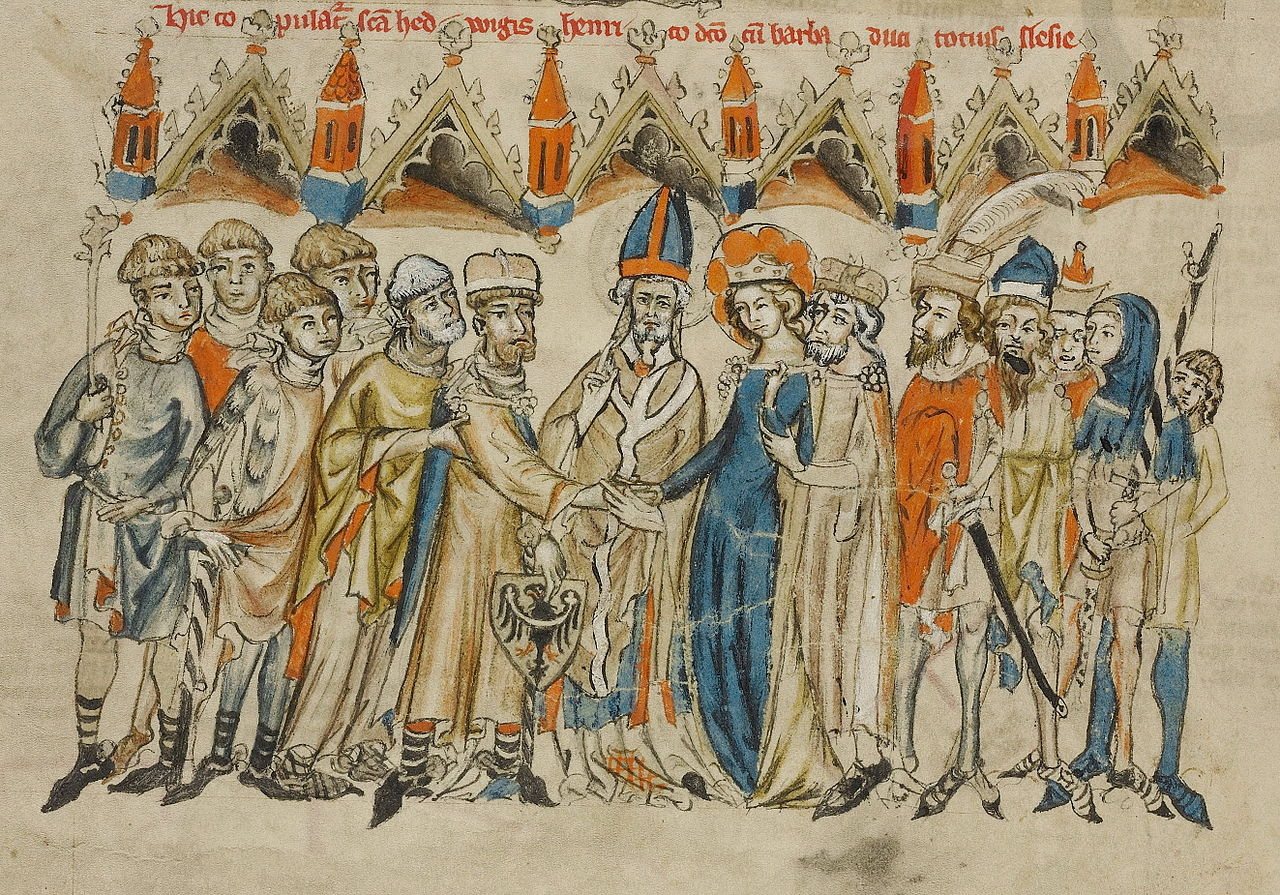 Hic co pulat᷑ scā hed wigis henri co dcō cū barba duci totius slesie